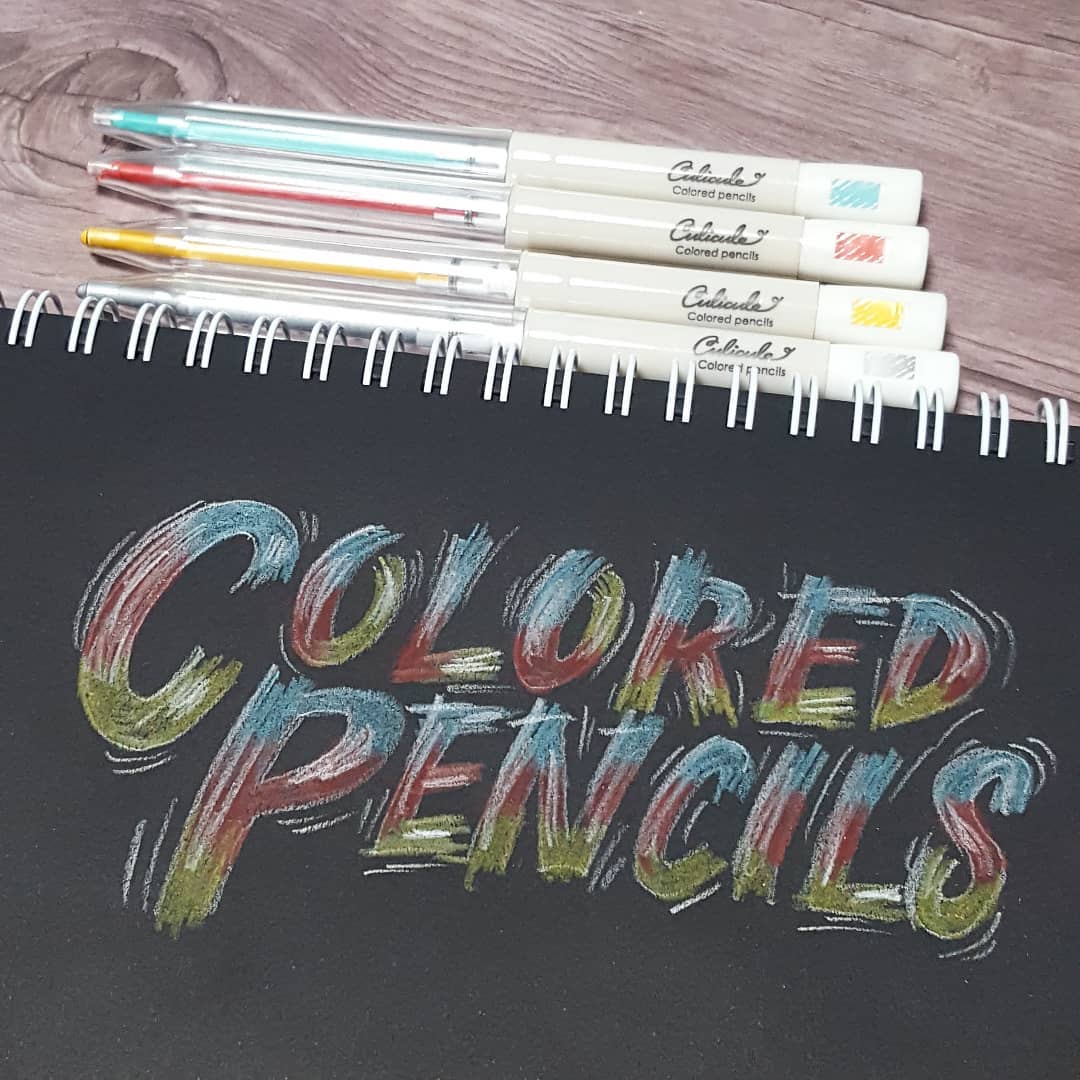 Culicule
Colored pencils
Culicule
Colored pencils
Culicule
Colored pencils
Culicule
Colored pencils
COLORED
PENCILS